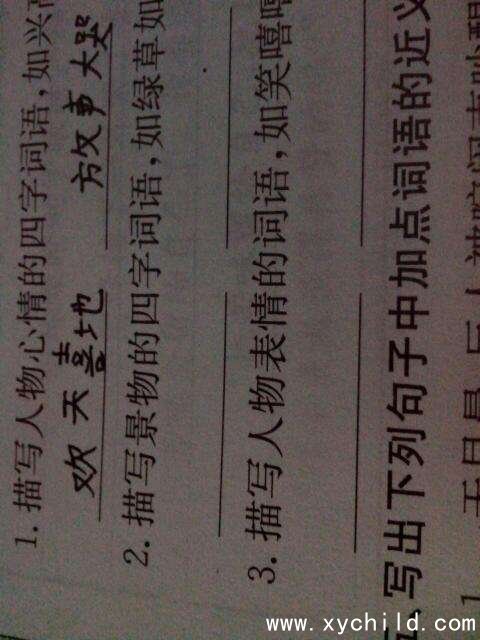 1. 描写人物心情的四字词语,如兴高
欢天喜地 放声大哭
2. 描写景物的四字词语,如绿草如
3. 描写人物表情的词语,如笑嘻嘻
写出下列句子中加点词语的近义
1.
www.xychild.com